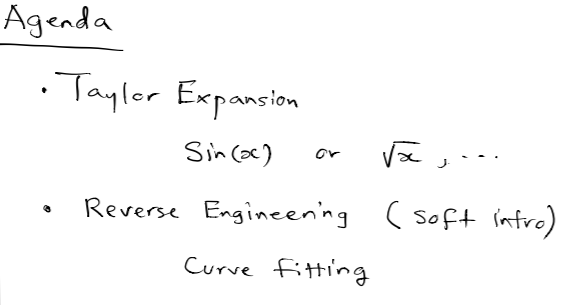 Agenda
• Taylor Expansion
Sin(x) or √x, ...
• Reverse Engineering (soft intro)
Curve fitting